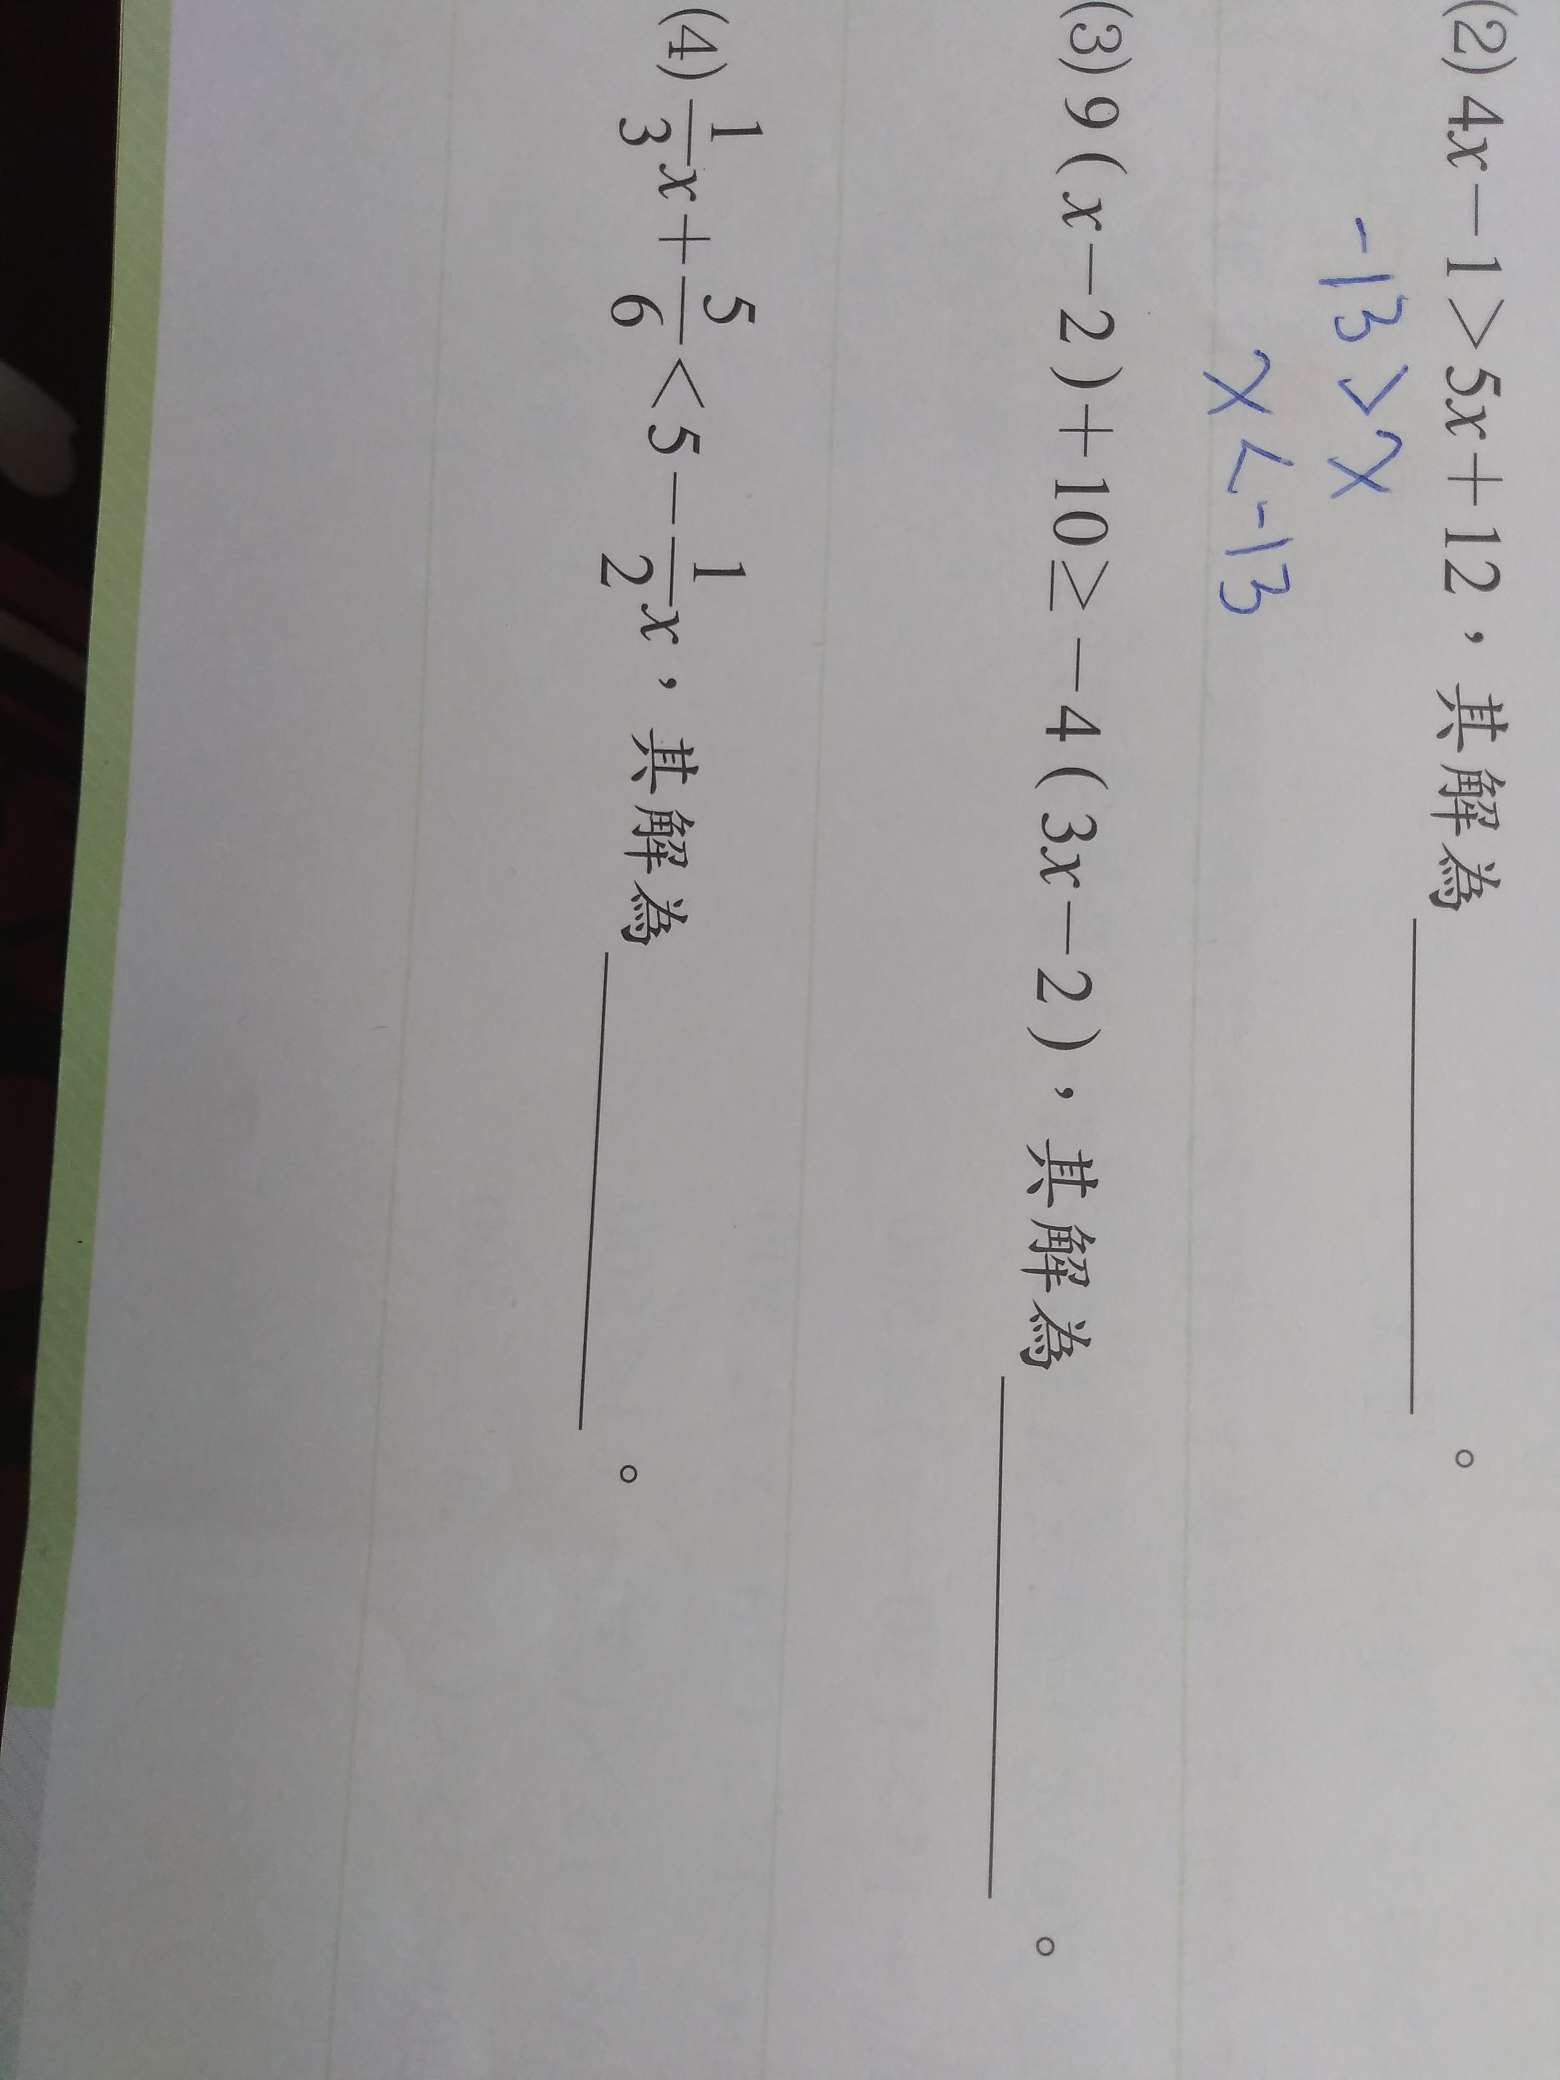 (2) 4x－1＞5x＋12，其解為＿＿＿＿＿＿。
-13 > x
x < -13
(3) 9(x－2)＋10≥－4(3x－2)，其解為＿＿＿＿＿＿。
(4) 1/3 x＋5/6＜5－1/2 x，其解為＿＿＿＿＿＿。